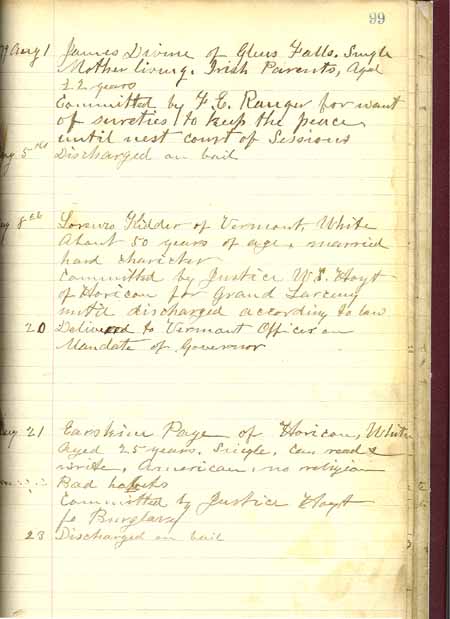 99
Aug 1 James Divine of Glens Falls. Single
Mother living. Irish Parents, Aged
22 years
Committed by F. E. Ranger for want
of sureties to keep the peace
until nest court of Sessions
5th Discharged on bail
8th Lorenzo Kidder of Vermont, White
About 50 years of age, married
hard charicter
Committed by Justice W. E. Hoyt
of Horicon for Grand Larceny
until discharged according to law
20 Delivered to Vermont Officer on
Mandate of Governor
Aug 21 Earskine Page of Horicon, White
Aged 25 years. Single, Can read &
write, American, no religion
Bad habits
Committed by Justice Hoyt
fo Burglary
23 Discharged on bail